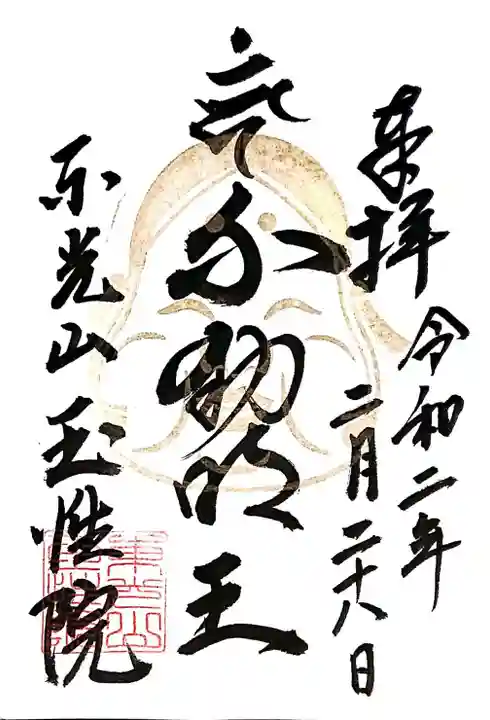 奉拝
令和二年
二月二十八日
不動明王
東光山玉性院